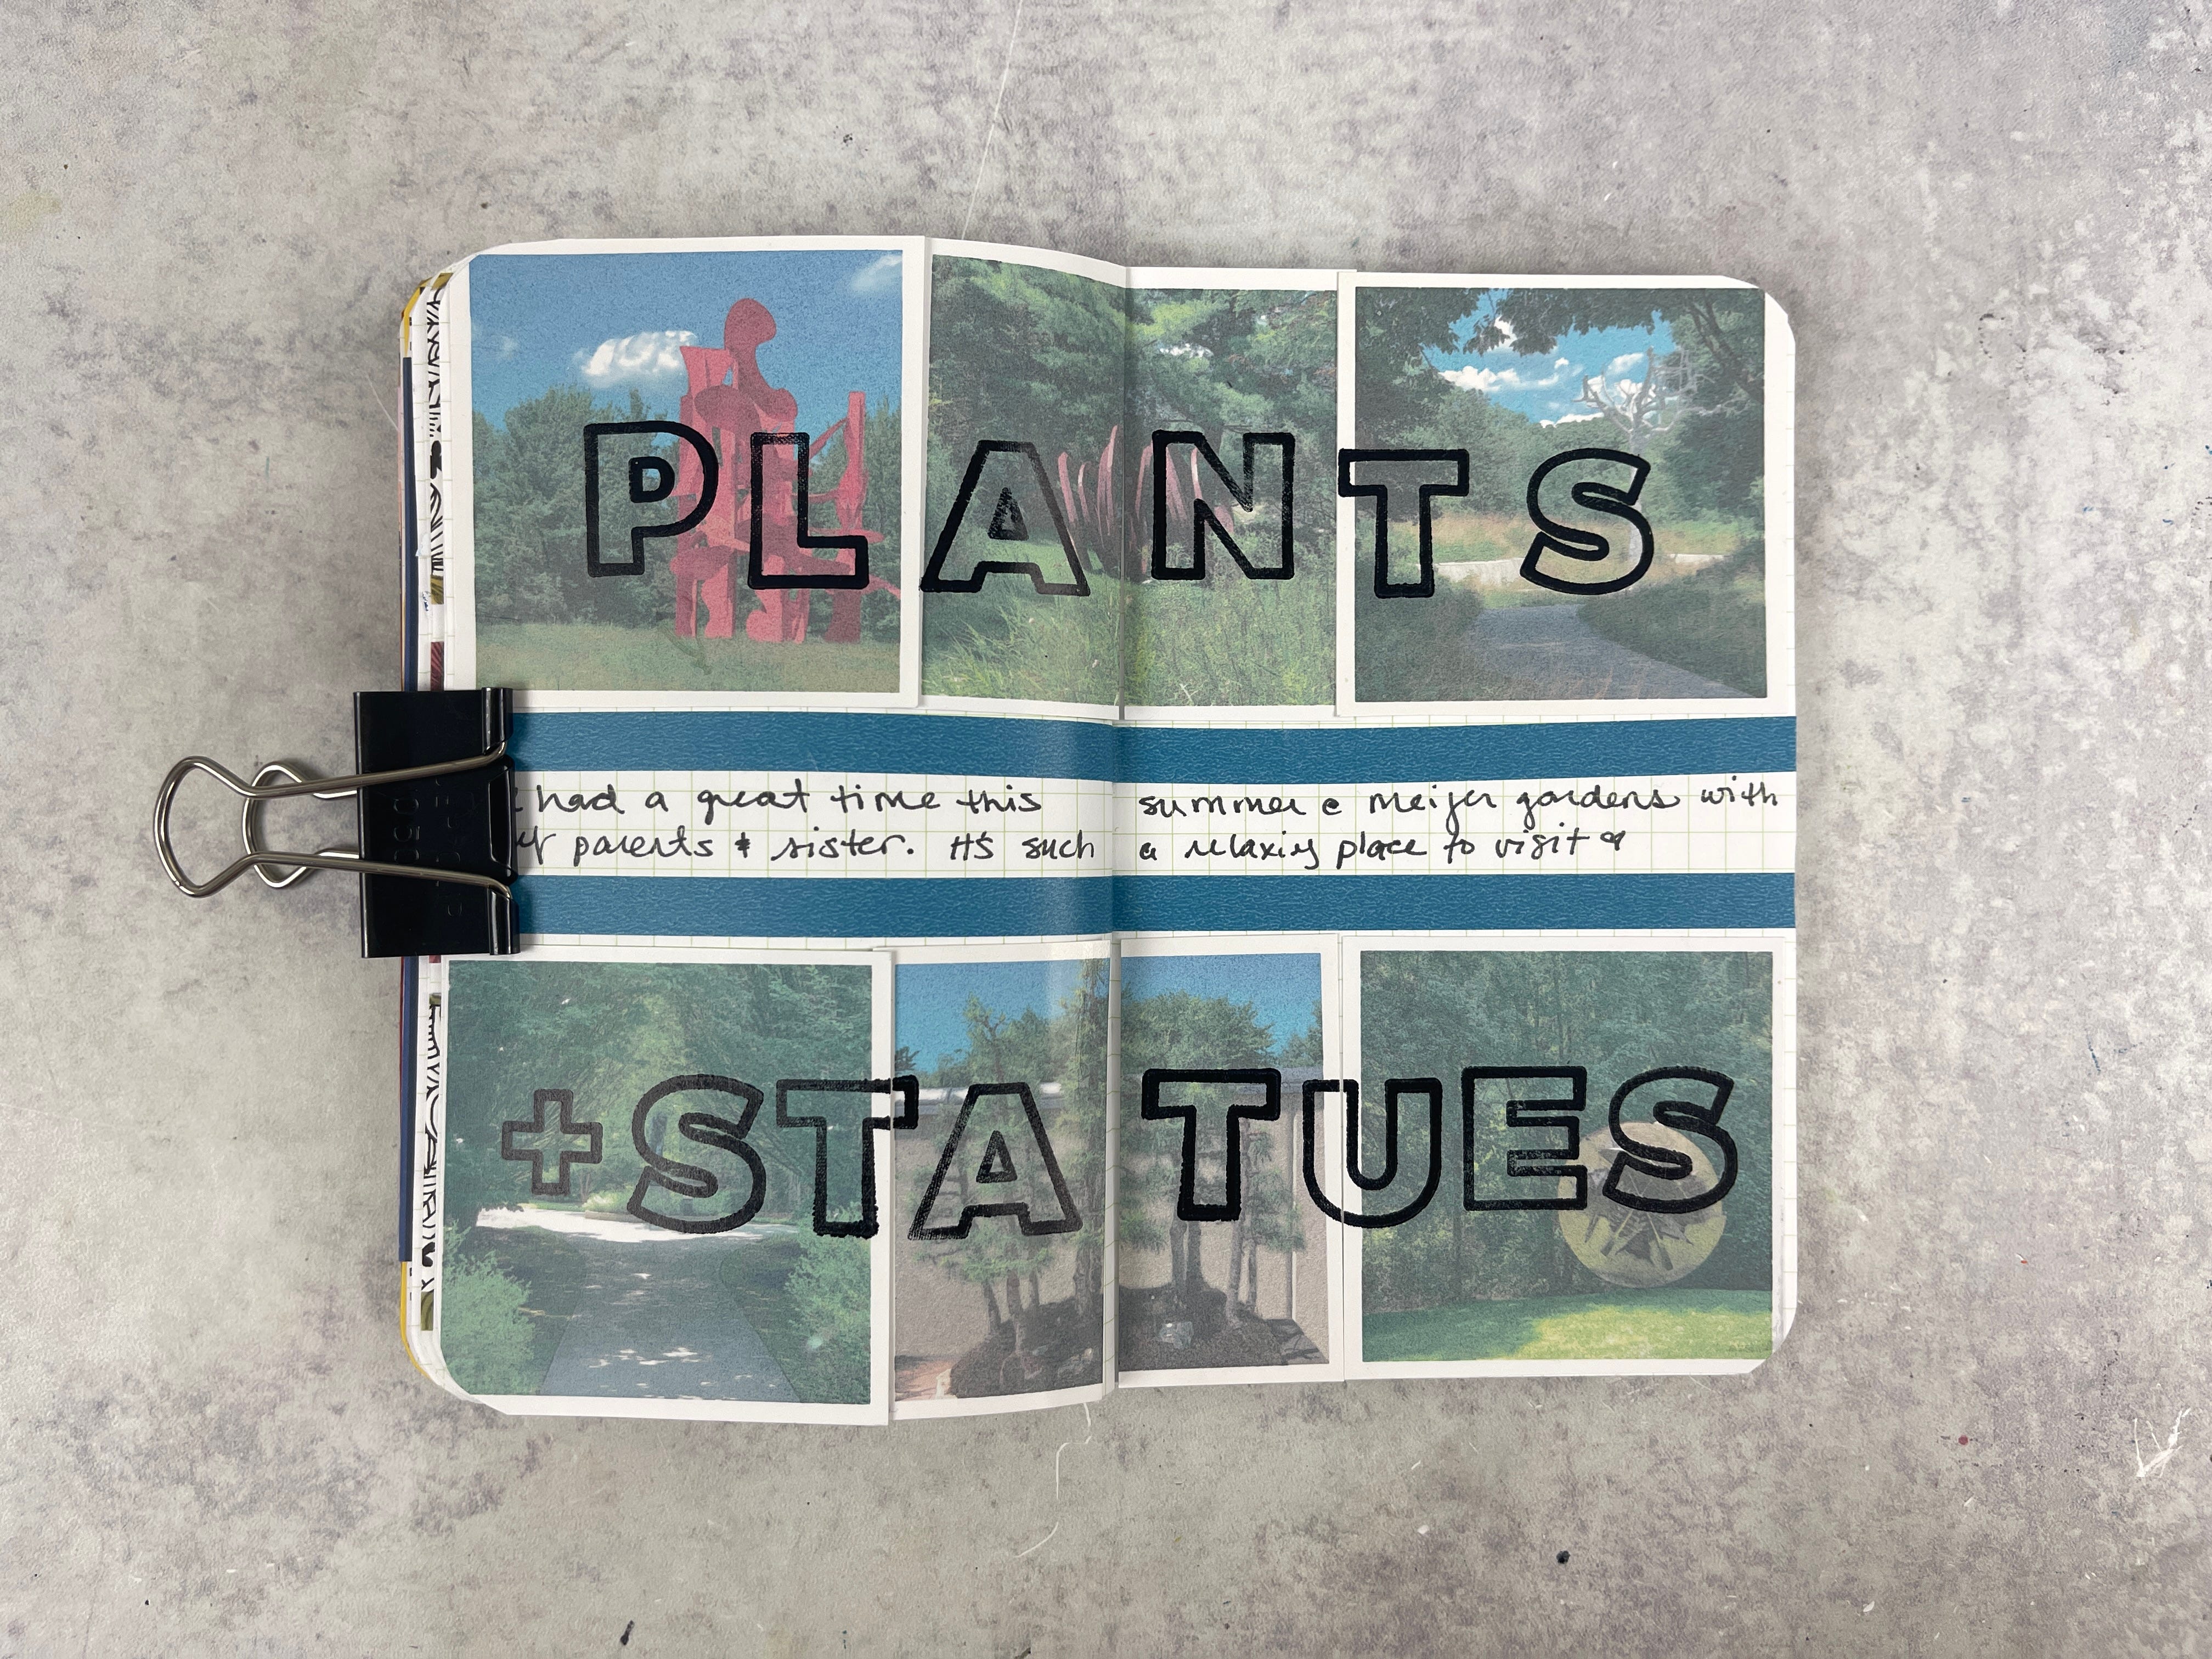 PLANTS
had a great time this summer @ meijer gardens with
parents & sister. It's such a relaxing place to visit
+STATUES